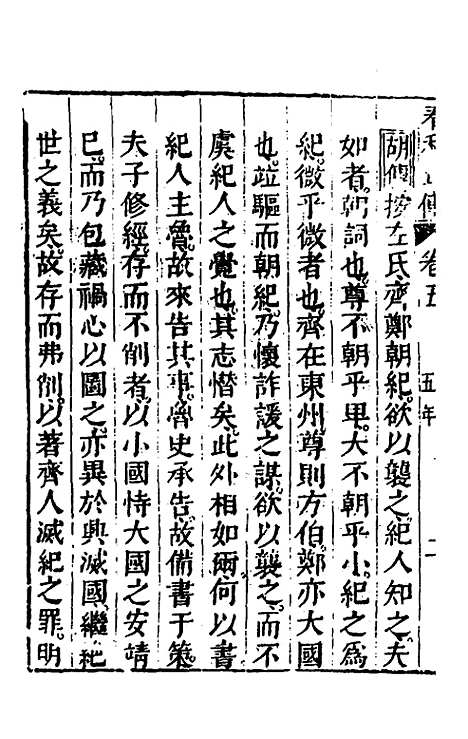 春秋五傳 卷五 五年 二
胡傳按左氏齊鄭朝紀欲以襲之紀人知之夫
如者朝詞也尊不朝乎卑大不朝乎小紀之爲
紀微乎微者也齊在東州尊則方伯鄭亦大國
也竝驅而朝紀乃懷詐諼之謀欲以襲之而不
虞紀人之覺也其志憯矣此外相如爾何以書
紀人主魯故來告其事魯史承告故備書于策
夫子修經存而不削者以小國恃大國之安靖
已而乃包藏禍心以圖之亦異於興滅國繼絶
世之義矣故存而弗削以著齊人滅紀之罪明